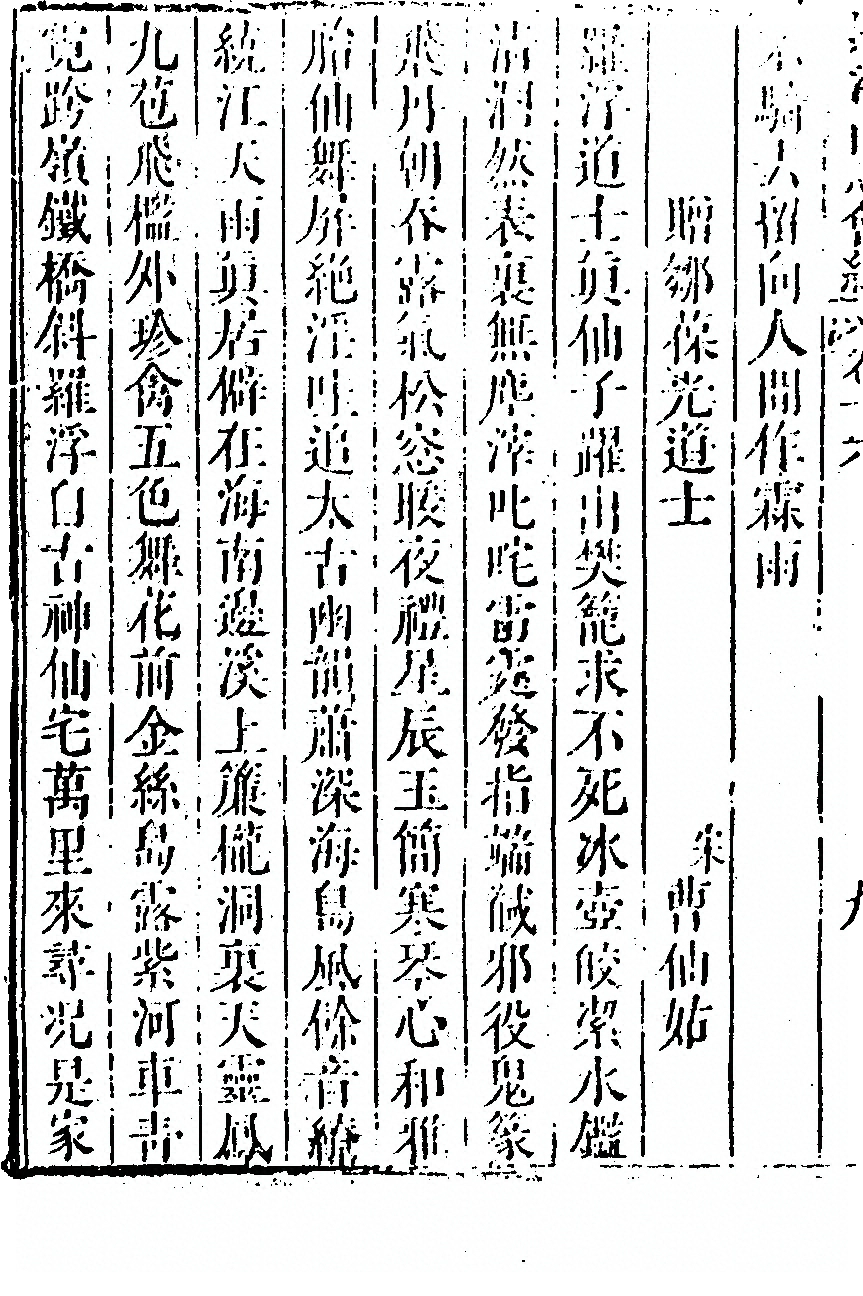 不騎去向人間作霖雨
贈鄒葆光道士　宋曹仙姑
羅浮道士真仙子躍出樊籠求不死冰壺皎潔水鑑
清洞然表裏無塵滓叱咤雷霆發指端馘邪役鬼篆
飛丹朝吞霞氣松窓暖夜禮星辰玉簡寒琴心和雅
胎仙舞屏絶淫哇追太古幽韻蕭深海島風餘音繚
繞江天雨真居僻在海南邊溪上簾櫳洞裏天靈鳳
九苞飛檻外珍禽五色舞花前金絲島露紫河車青
霓跨嶺鐵橋斜羅浮自古神仙宅萬里來尋況是家